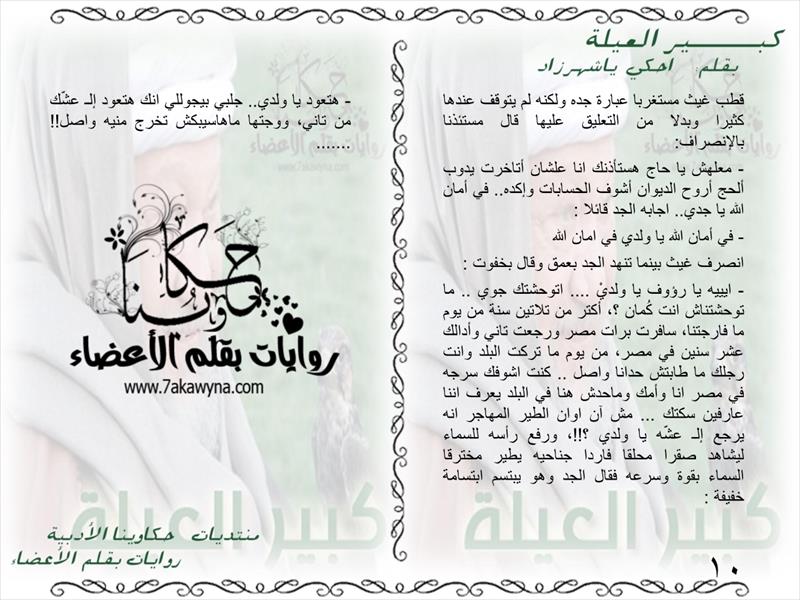 كبـــــــير العيلة
بقلم احكي ياشهرزاد
قطب غيث مستغربا عبارة جده ولكنه لم يتوقف عندها
كثيرا وبدلا من التعليق عليها قال مستئذنا
بالإنصراف:
- معلهش يا حاج هستأذنك انا علشان أتاخرت يدوب
ألحج أروح الديوان أشوف الحسابات وإكده.. في أمان
الله يا جدي.. اجابه الجد قائلا :
- في أمان الله يا ولدي في امان الله
انصرف غيث بينما تنهد الجد بعمق وقال بخفوت :
- ايييه يا رؤوف يا ولديْ .... اتوحشتك جوي .. ما
توحشتناش انت كُمان ؟، أكتر من تلاتين سنة من يوم
ما فارجتنا، سافرت برات مصر ورجعت تاني وأدالك
عشر سنين في مصر، من يوم ما تركت البلد وانت
رجلك ما طابتش حدانا واصل .. كنت اشوفك سرجه
في مصر انا وأمك وماحدش هنا في البلد يعرف اننا
عارفين سكتك ... مش آن اوان الطير المهاجر انه
يرجع إلـ عشّه يا ولدي ؟!!، ورفع رأسه للسماء
ليشاهد صقرا محلقا فاردا جناحيه يطير مخترقا
السماء بقوة وسرعه فقال الجد وهو يبتسم ابتسامة
خفيفة :
كبير العيلة
١٠
- هتعود يا ولدي.. جلبي بيجوللي انك هتعود إلـ عشّك
من تاني، ووجتها ماهاسيبكش تخرج منيه واصل!!
.......
حكاوينا
روايات بقلم الأعضاء
www.7akawyna.com
حكاوينا
روايات بقلم الأعضاء
www.7akawyna.com
كبير العيلة
منتديات حكاوينا الأدبية
روايات بقلم الأعضاء